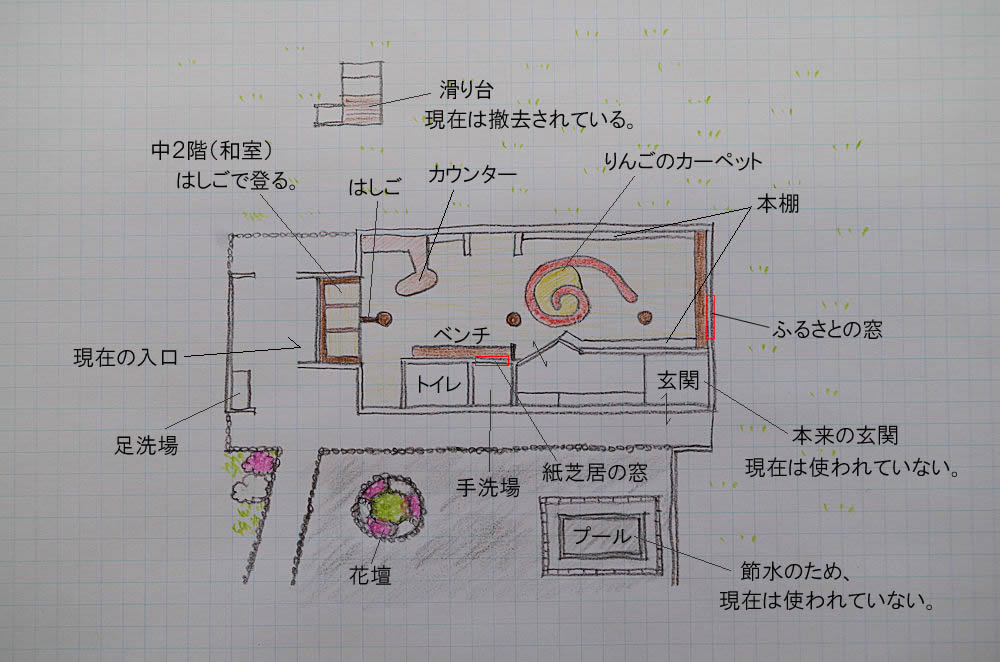 滑り台
現在は撤去されている。
中2階(和室)
はしごで登る。
はしご
カウンター
りんごのカーペット
本棚
ふるさとの窓
現在の入口
ベンチ
トイレ
玄関
足洗場
手洗場
紙芝居の窓
本来の玄関
現在は使われていない。
花壇
プール
節水のため、
現在は使われていない。